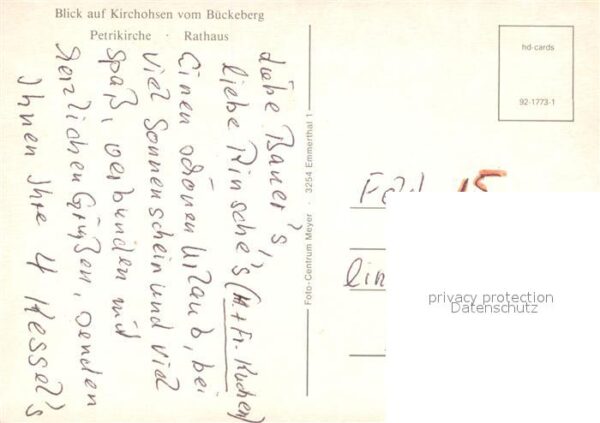 Blick auf Kirchohsen vom Bückeberg
Petrikirche · Rathaus
Liebe Bauer's,
liebe Rinsche's (H. + Fr. Kuchen)
Einen schönen Urlaub, bei
viel Sonnenschein und viel
Spaß, verbunden mit
herzlichen Grüßen, senden
Ihnen Ihre 4 Kessel's
Foto-Centrum Meyer · 3254 Emmerthal 1
hd-cards
92-1773-1
15
privacy protection
Datenschutz